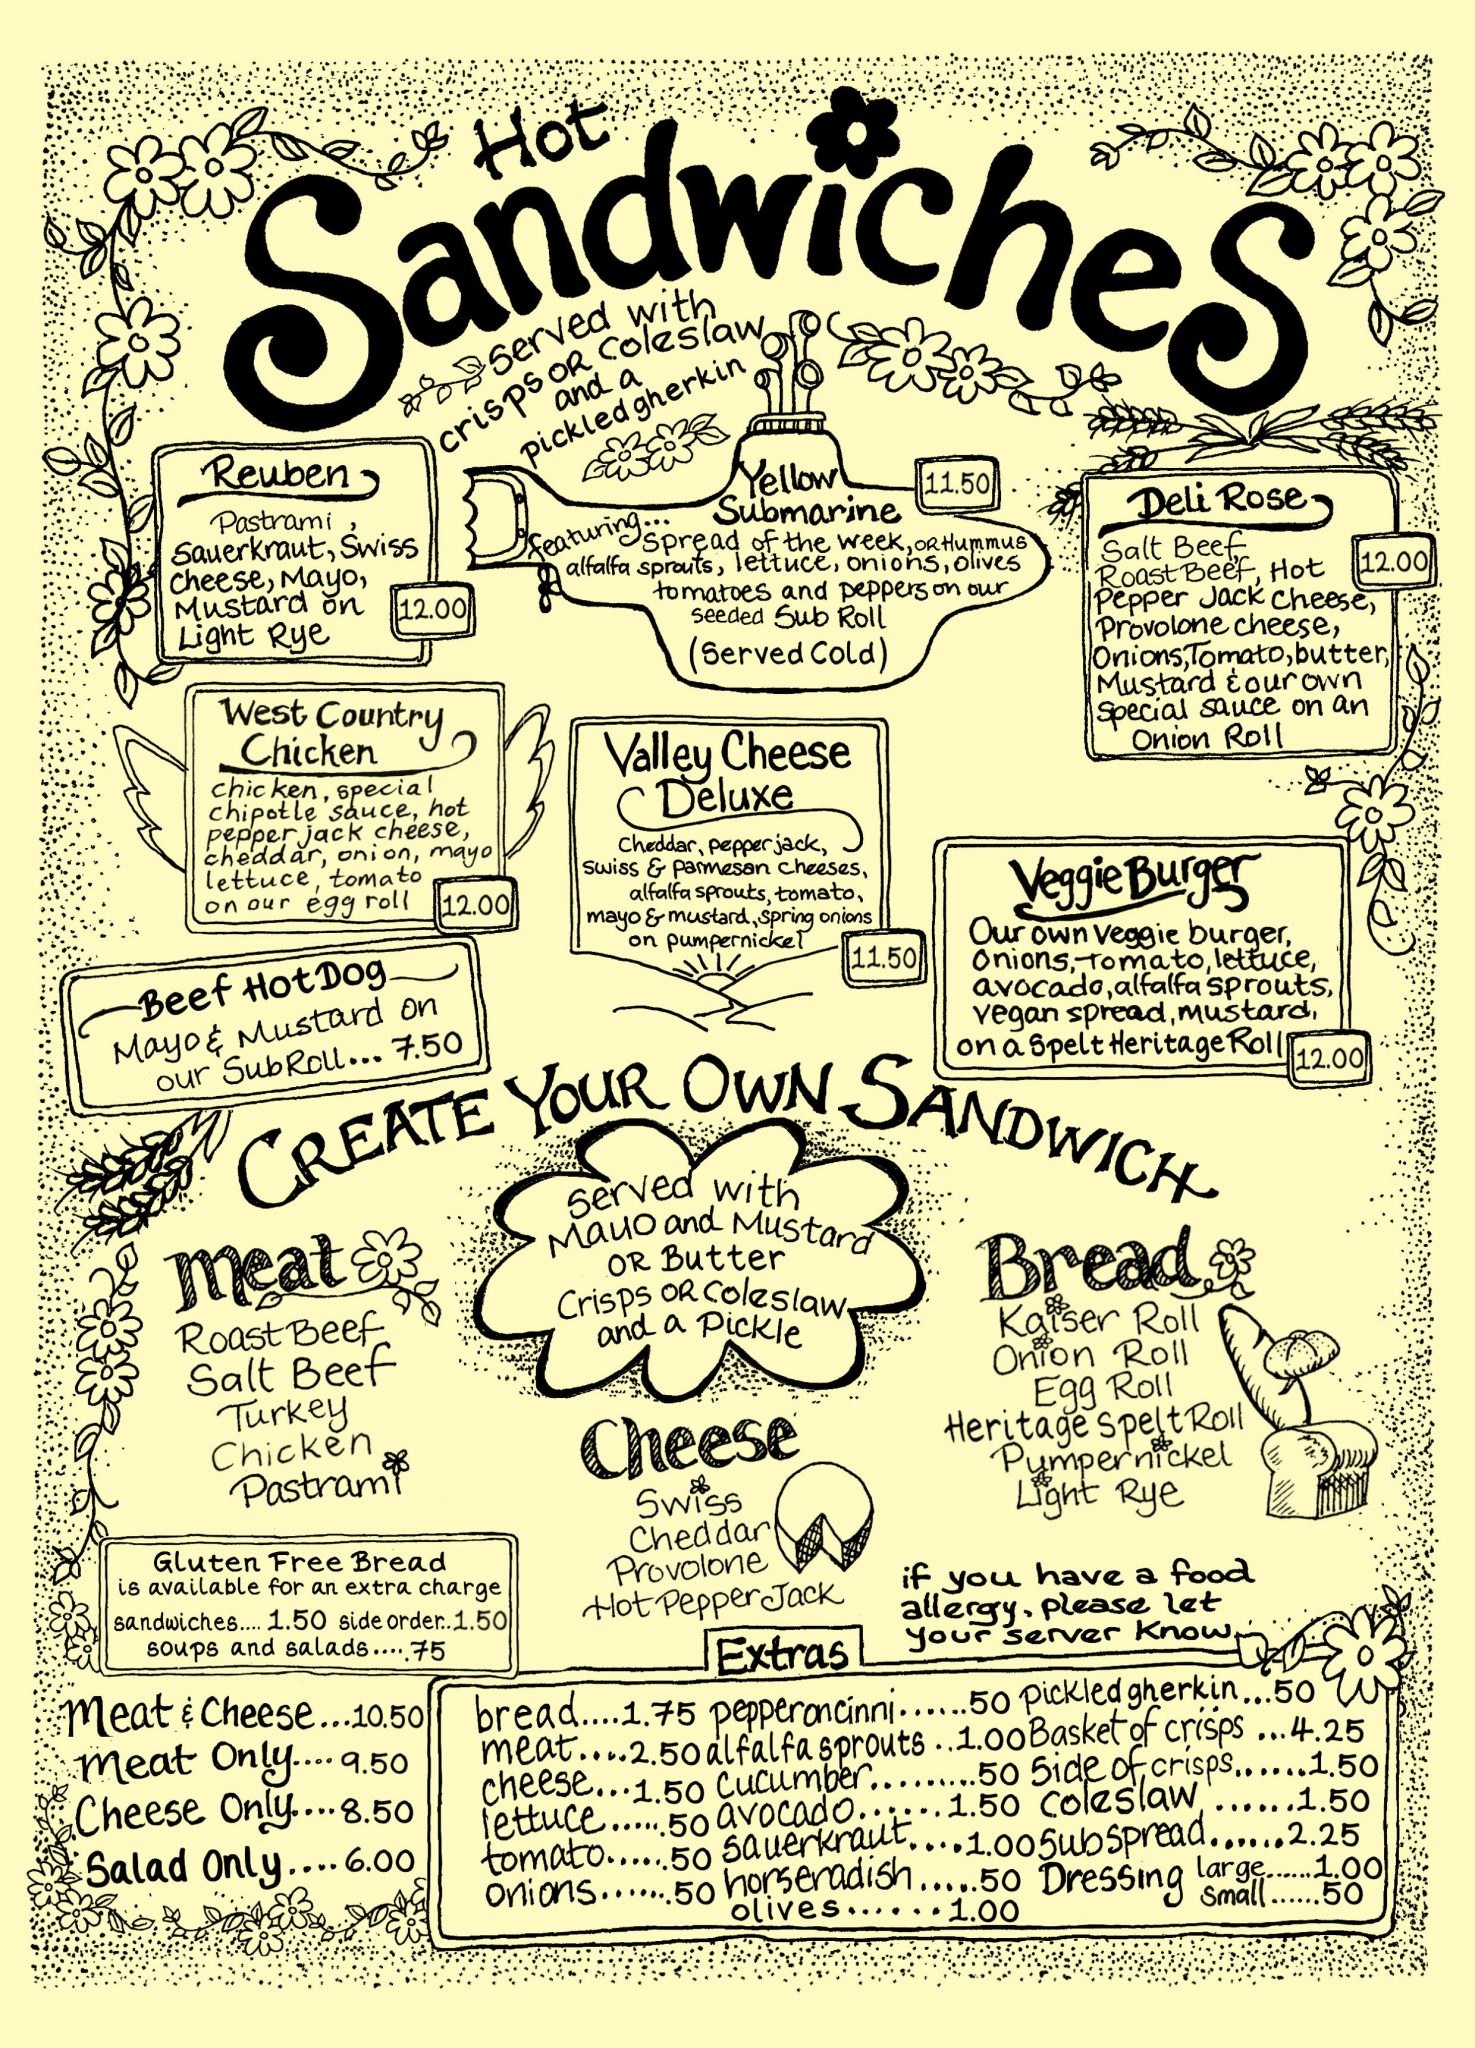 Hot
Sandwiches
Served with
crisps OR Coleslaw
and a
pickled gherkin
Reuben
Pastrami,
Sauerkraut, Swiss
Cheese, Mayo,
Mustard on
Light Rye
12.00
Yellow
Submarine
11.50
featuring...
spread of the week, OR Hummus
alfalfa sprouts, lettuce, onions, olives
tomatoes and peppers on our
seeded Sub Roll
(Served Cold)
Deli Rose
Salt Beef,
Roast Beef, Hot
Pepper Jack Cheese,
Provolone cheese,
Onions, Tomato, butter,
Mustard & our own
special sauce on an
Onion Roll
12.00
West Country
Chicken
chicken, special
chipotle sauce, hot
pepper jack cheese,
cheddar, onion, mayo
lettuce, tomato
on our egg roll
12.00
Valley Cheese
Deluxe
Cheddar, pepper jack,
Swiss & Parmesan cheeses,
alfalfa sprouts, tomato,
mayo & mustard, spring onions
on pumpernickel
11.50
Veggie Burger
Our own veggie burger,
onions, Tomato, lettuce,
avocado, alfalfa sprouts,
vegan spread, mustard,
on a Spelt Heritage Roll
12.00
Beef Hot Dog
Mayo & Mustard on
our Sub Roll... 7.50
CREATE YOUR OWN SANDWICH
Served with
Mauo and Mustard
OR Butter
Crisps OR Coleslaw
and a Pickle
Meat
Roast Beef
Salt Beef
Turkey
Chicken
Pastrami
Cheese
Swiss
Cheddar
Provolone
Hot Pepper Jack
Bread
Kaiser Roll
Onion Roll
Egg Roll
Heritage Spelt Roll
Pumpernickel
Light Rye
Gluten Free Bread
is available for an extra charge
sandwiches.... 1.50 side order..1.50
soups and salads.....75
if you have a food
allergy, please let
your server know
Meat & Cheese...10.50
Meat Only.... 9.50
Cheese Only....8.50
Salad Only....6.00
Extras
bread....1.75
meat....2.50
cheese...1.50
lettuce......50
tomato......50
onions.......50
pepperoncinni......50
alfalfa sprouts..1.00
cucumber.........50
avocado......1.50
sauerkraut....1.00
horseradish.....50
olives......1.00
Pickled gherkin...50
Basket of crisps ...4.25
Side of crisps......1.50
Coleslaw......1.50
Sub spread......2.25
Dressing large......1.00
small......50